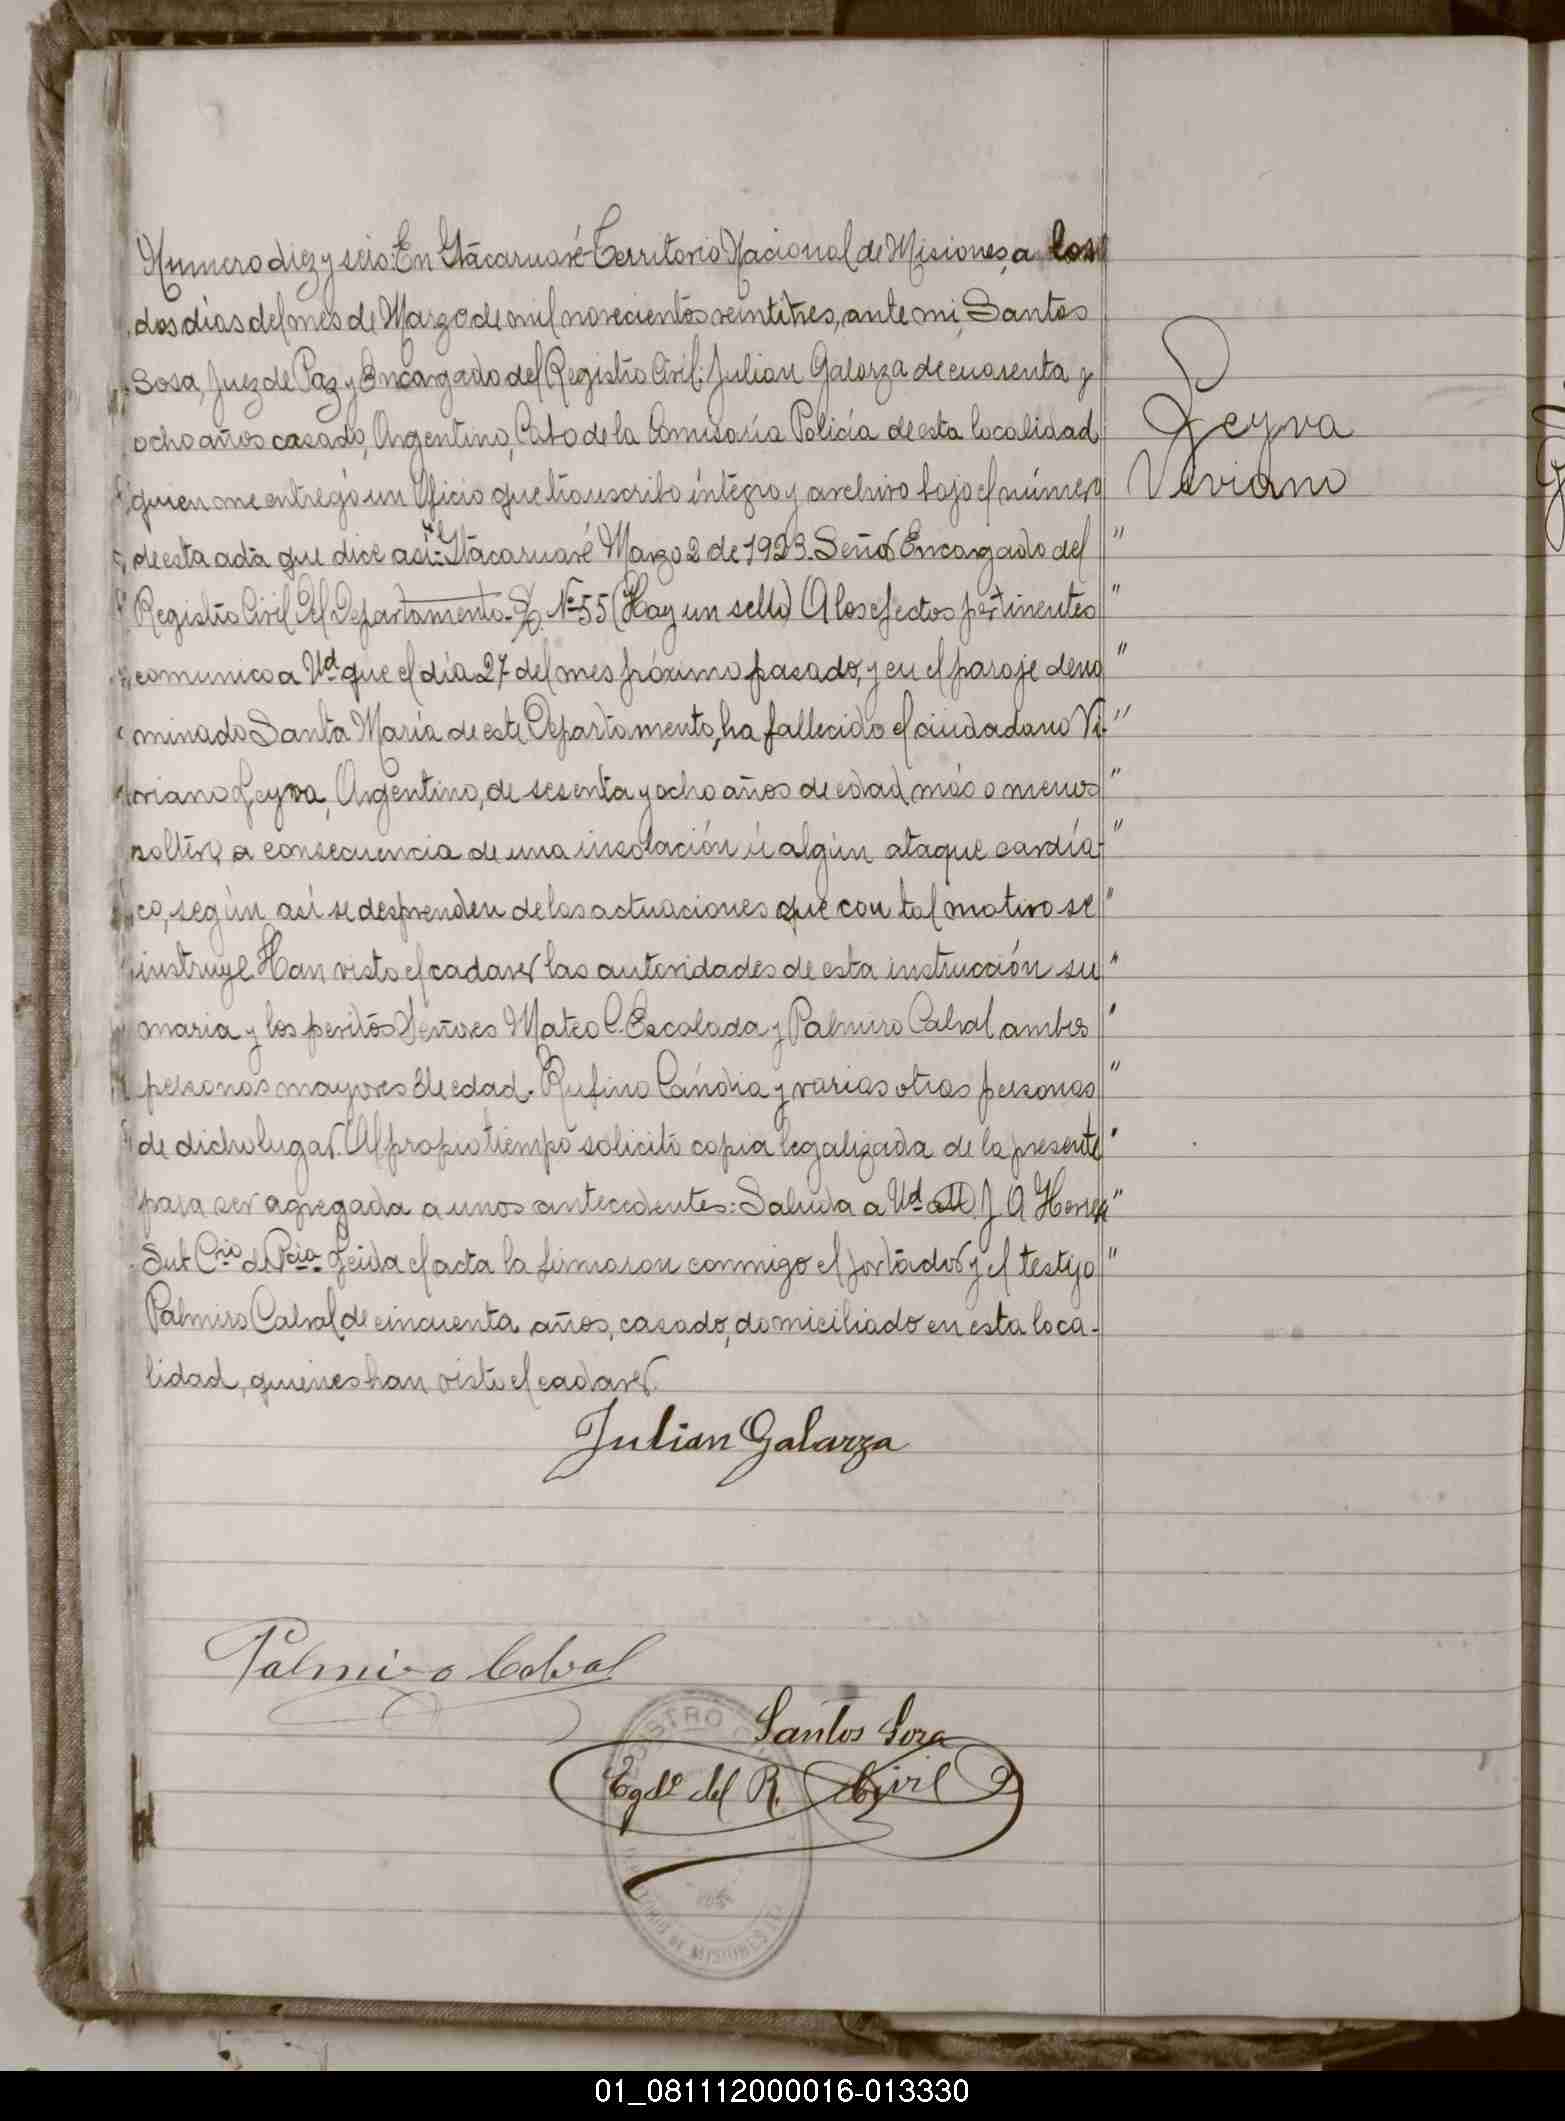 Numero diez y seis: En Itacaruaré Territorio Nacional de Misiones, a los
dos días del mes de Marzo de mil novecientos veintitres, ante mi, Santos
Sosa, Juez de Paz y Encargado del Registro Civil: Julian Galarza de cuarenta y
ocho años casado, Argentino, Cabo de la Comisaría Policía de esta localidad
quien me entregó un Oficio que transcribo íntegro y archivo bajo el número
de esta acta que dice así: "Itacaruaré Marzo 2 de 1923. Señor Encargado del "
Registro Civil Del Departamento. S/D. Nº 55 (Hay un sello) A los efectos pertinentes "
comunico a Ud que el día 27 del mes próximo pasado, y en el paraje deno "
minado Santa María de este Departamento, ha fallecido el ciudadano Vi- "
viano Leyva, Argentino, de sesenta y ocho años de edad más o menos "
soltero, a consecuencia de una insolación ú algún ataque cardía- "
co, según así se desprenden de las actuaciones que con tal motivo se "
instruye. Han visto el cadaver las autoridades de esta instrucción su "
maria y los peritos Señores Mateo C. Escalada y Palmiro Cabral ambos "
personas mayores de edad. Rufino Cándia y varias otras personas "
de dicho lugar. Al propio tiempo solicito copia legalizada de la presente "
para ser agregada a unos antecedentes: Saluda a Ud att. J. A Herrera "
Sub Crio de Pcia. Leida el acta la firmaron conmigo el portador y el testigo "
Palmiro Cabral de cincuenta años, casado, domiciliado en esta loca-
lidad, quienes han visto el cadaver.
Leyva
Viviano
Julian Galarza
Palmiro Cabral
Santos Sosa
Egdo del R. Civil
REGISTRO
TERRITORIO DE MISIONES
01_081112000016-013330